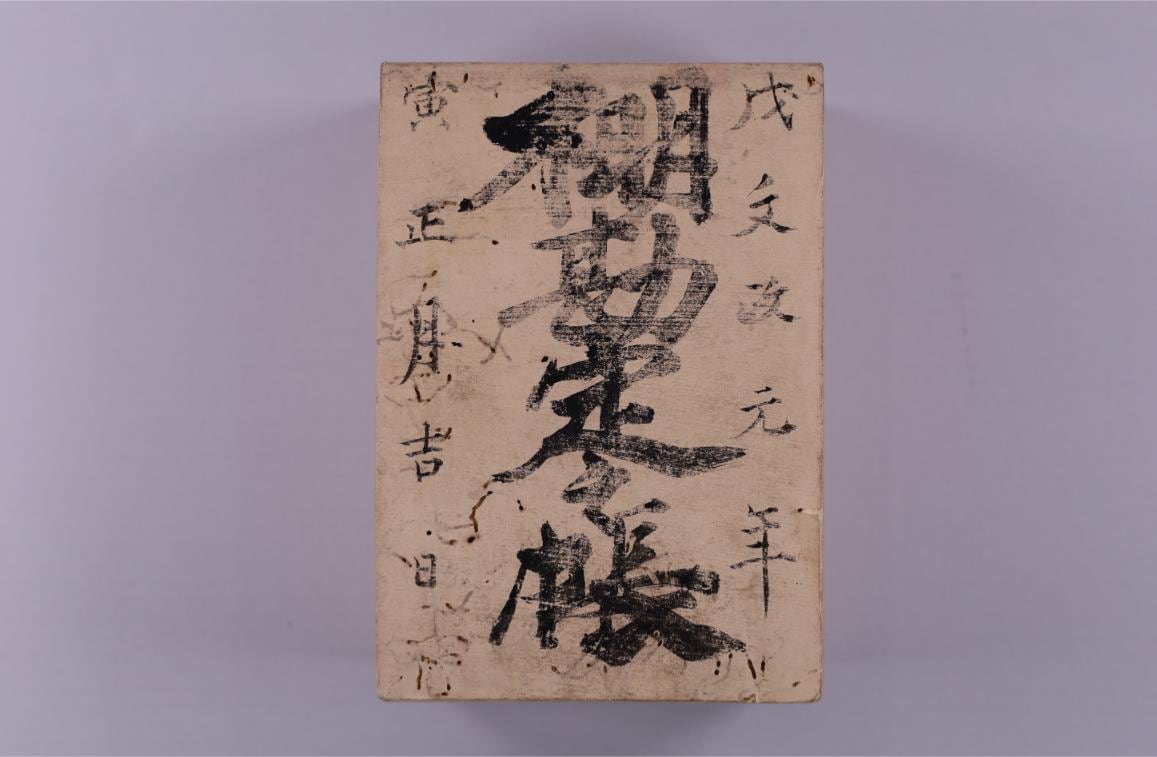 戊文政元年
棚勘定之帳
寅正月吉日